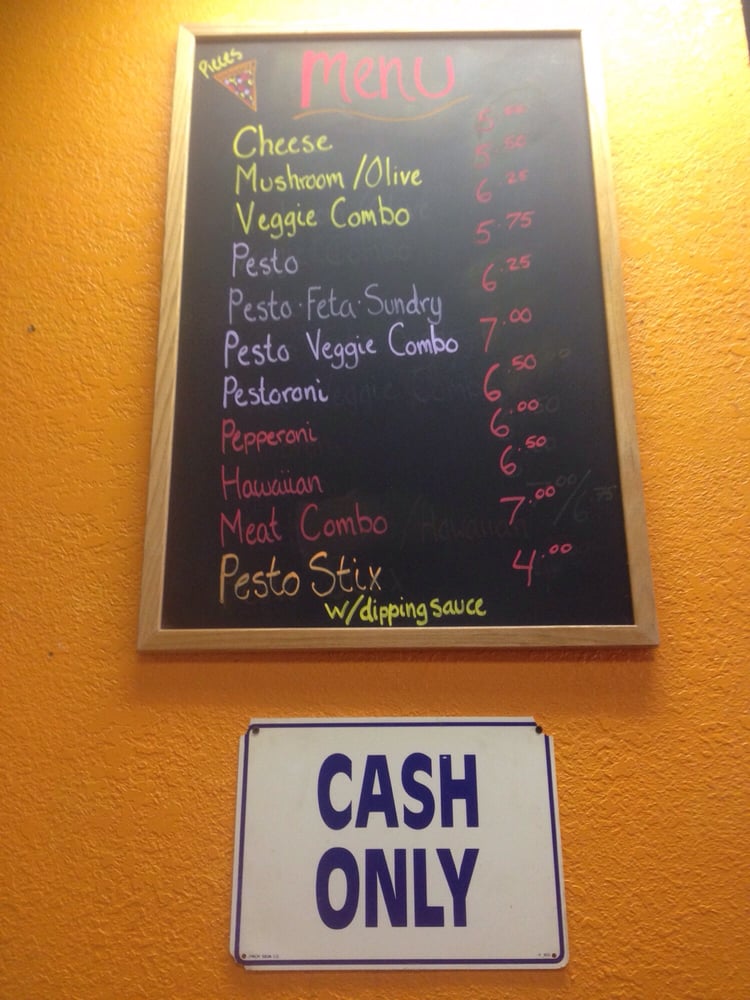 Pieces
Menu
Cheese
Mushroom/Olive 5.50
Veggie Combo 6.25
Pesto 5.75
Pesto·Feta·Sundry 6.25
Pesto Veggie Combo 7.00
Pestoroni 6.50
Pepperoni 6.00
Hawaiian 6.50
Meat Combo 7.00
Pesto Stix 4.00
w/dipping sauce
CASH
ONLY